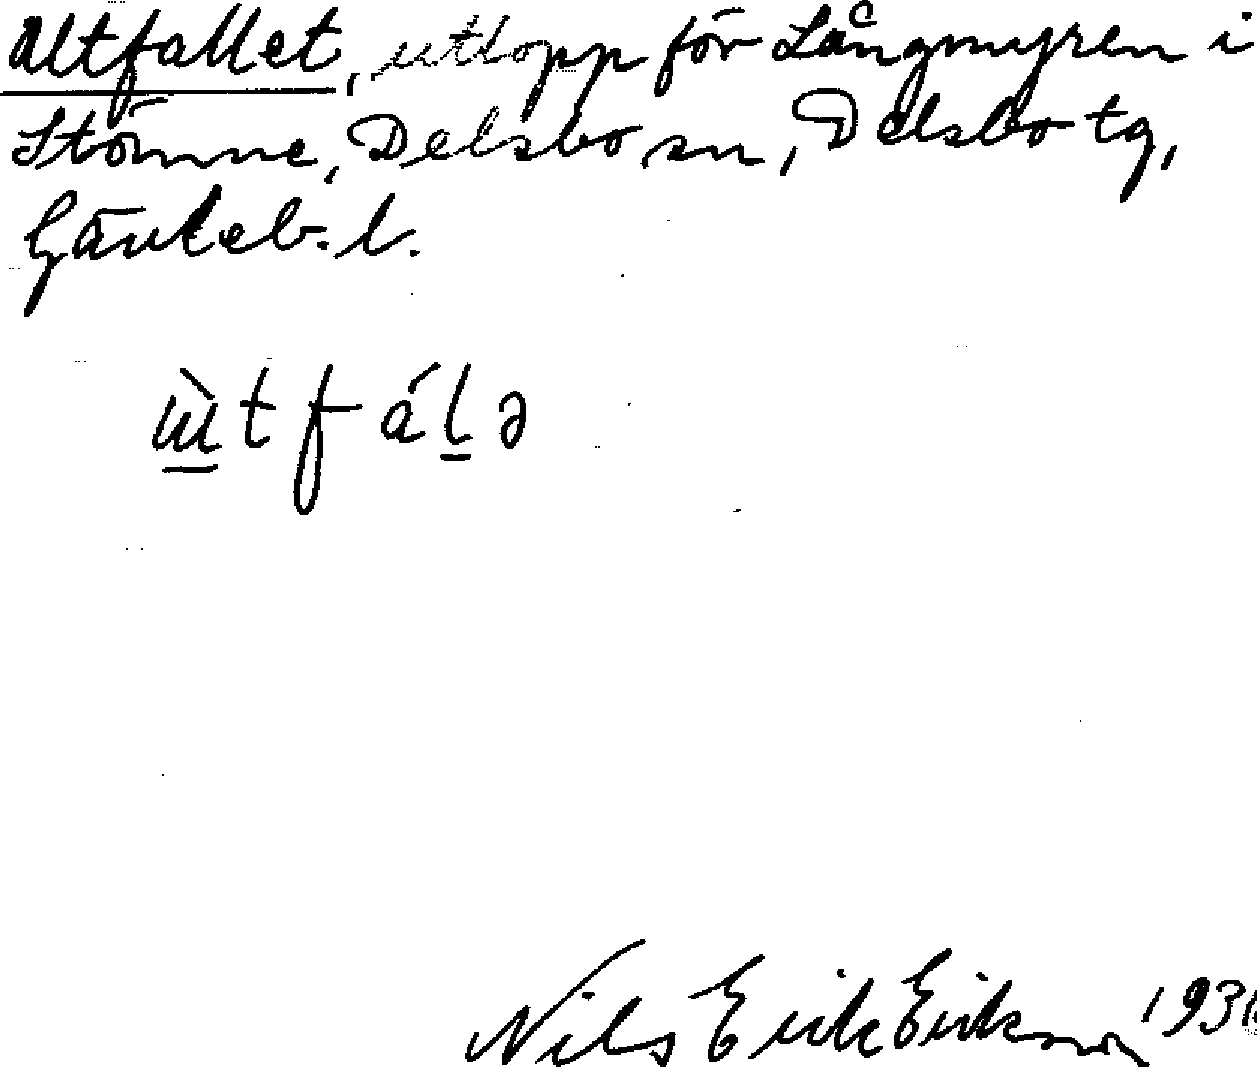 Utfallet, utlopp för Långmyren i
Stömne, Delsbo sn, Delsbo tg,
Gävleb. l.
ùtfáḷə
Nils Erik Erikson 193